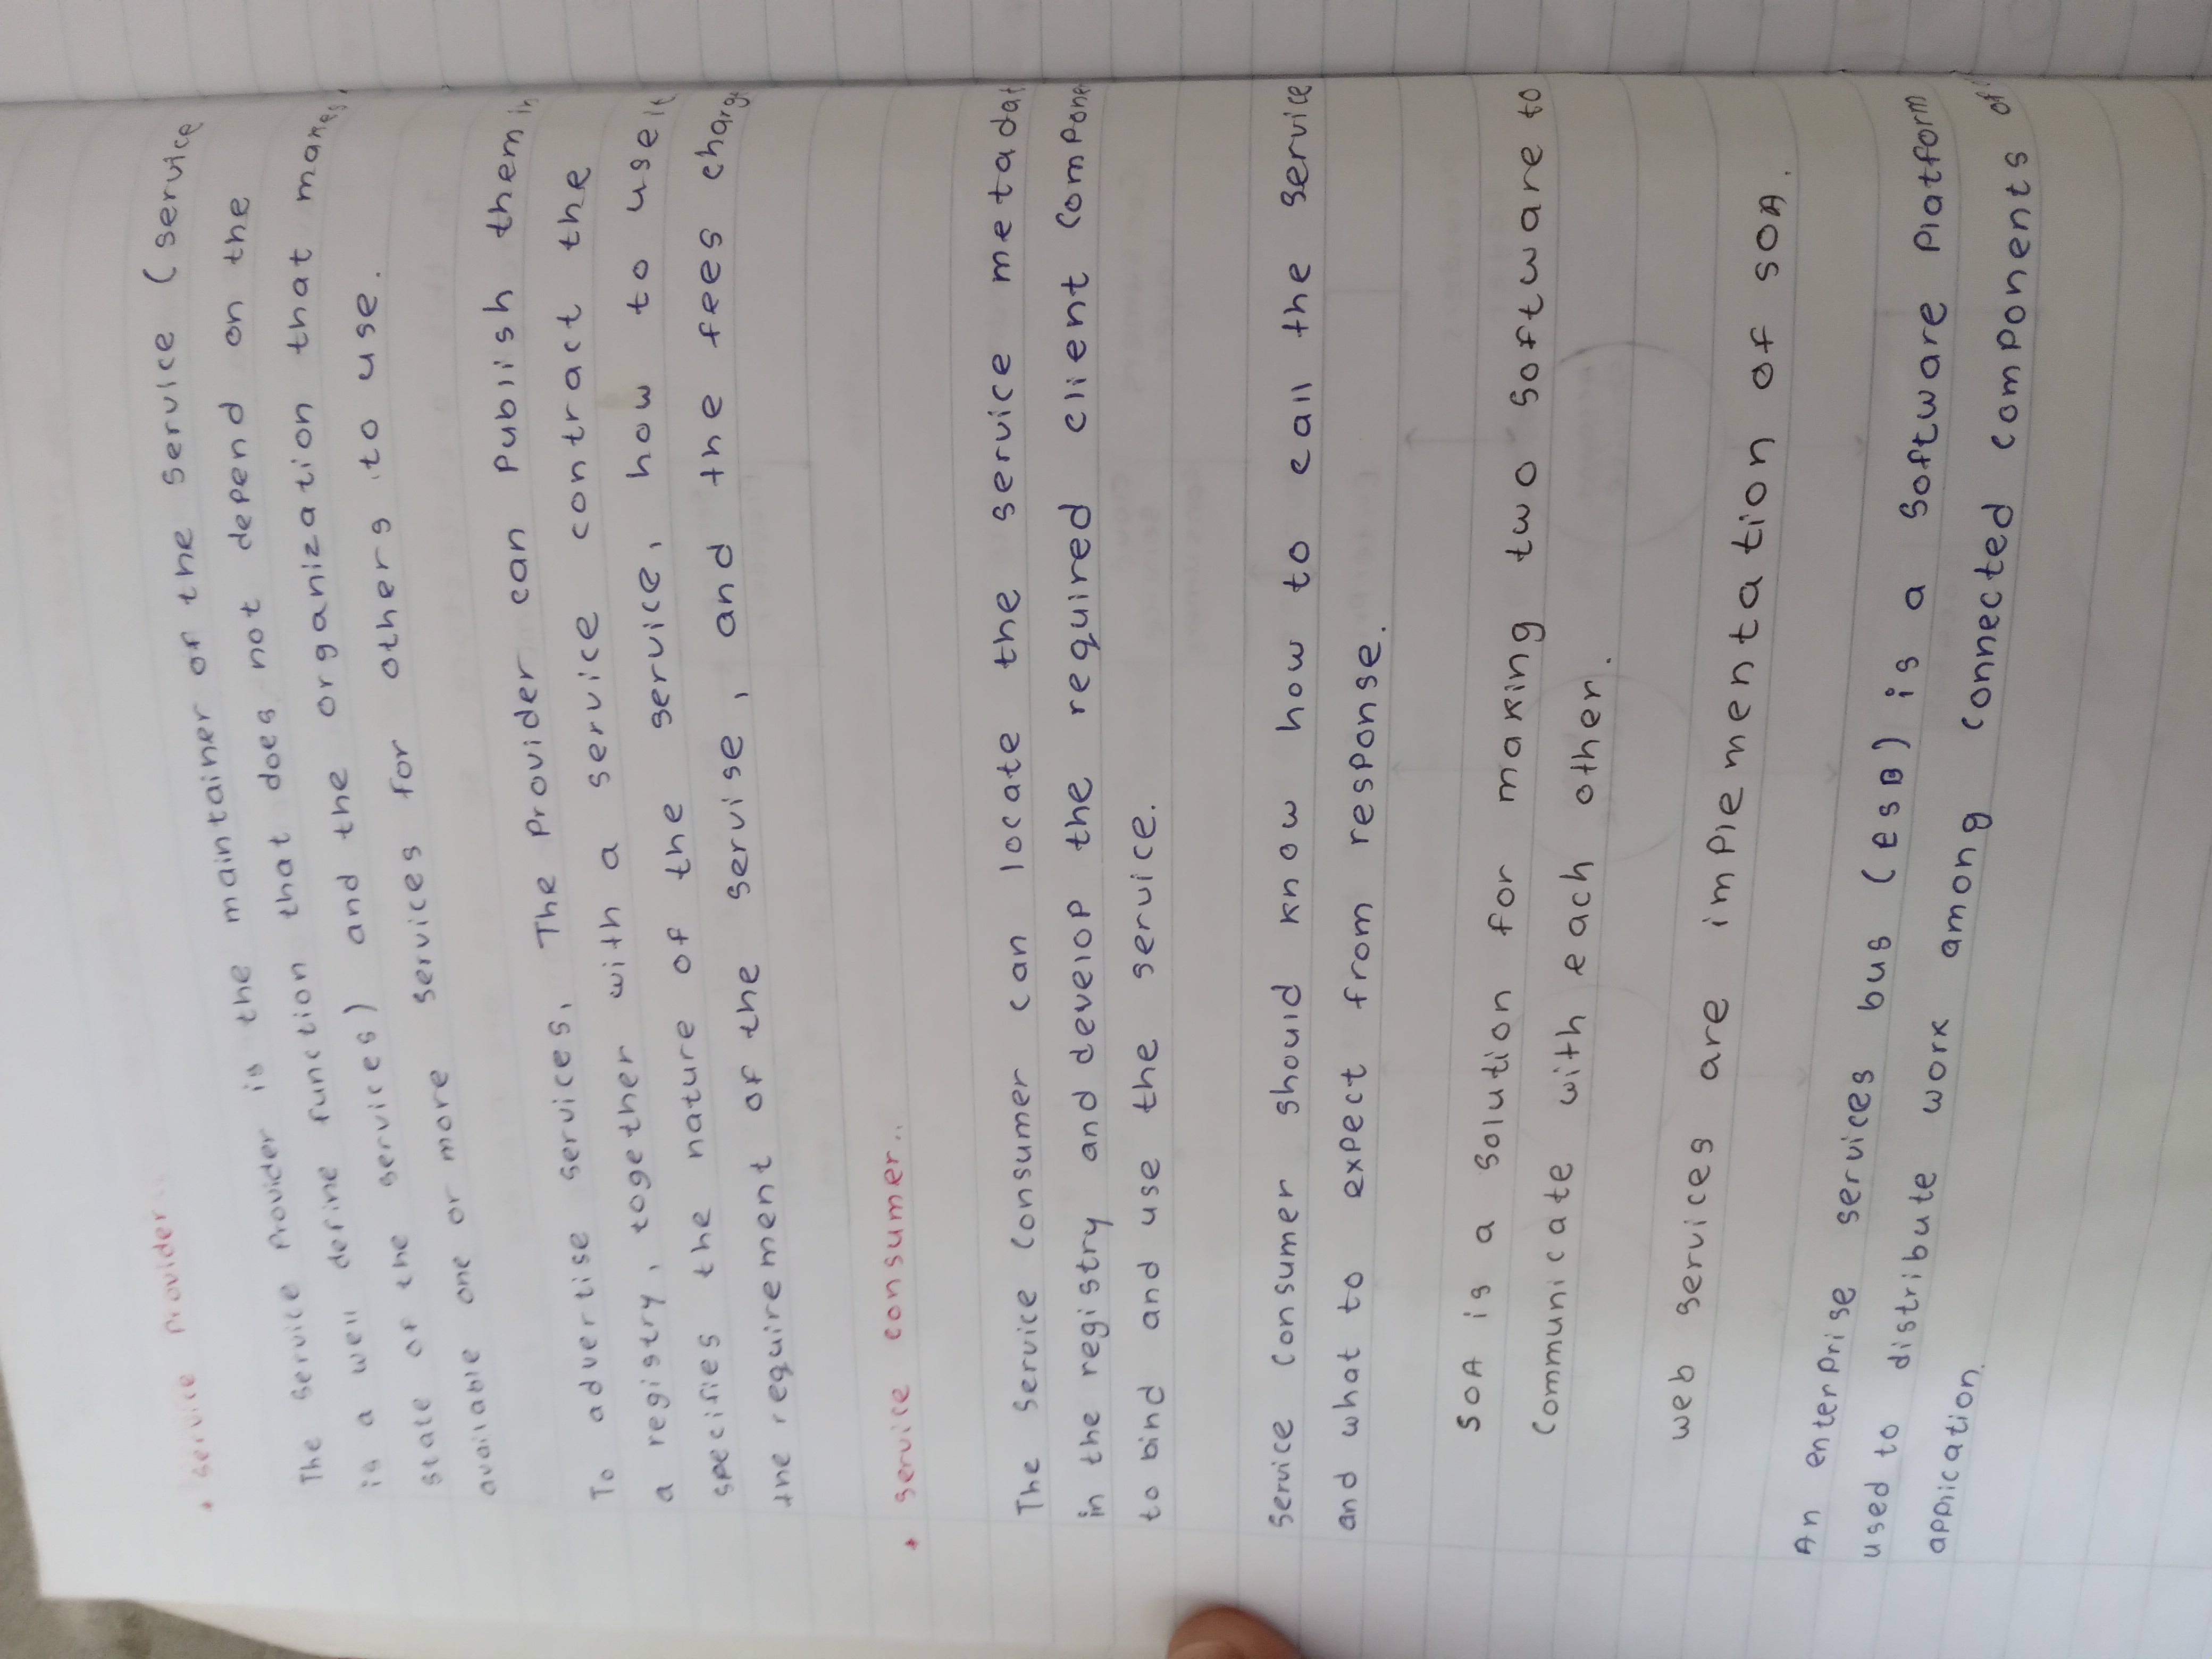 * Service Provider..
The Service Provider is the maintainer of the Service (service
is a well define function that does not depend on the
state of the services) and the organization that makes
available one or more services for others to use.
To advertise services, The Provider can Publish them in
a registry, together with a service contract the
specifies the nature of the service, how to use it
the requirement of the servise, and the fees charge
* Service consumer..
The Service Consumer can locate the service metadat
in the registry and develop the required client Compone
to bind and use the service.
Service Consumer should know how to call the service
and what to expect from response.
SOA is a Solution for making two Software to
Communicate with each other.
web services are implementation of SOA.
An enterprise services bus (ESB) is a Software Platform
used to distribute work among connected components of
application.